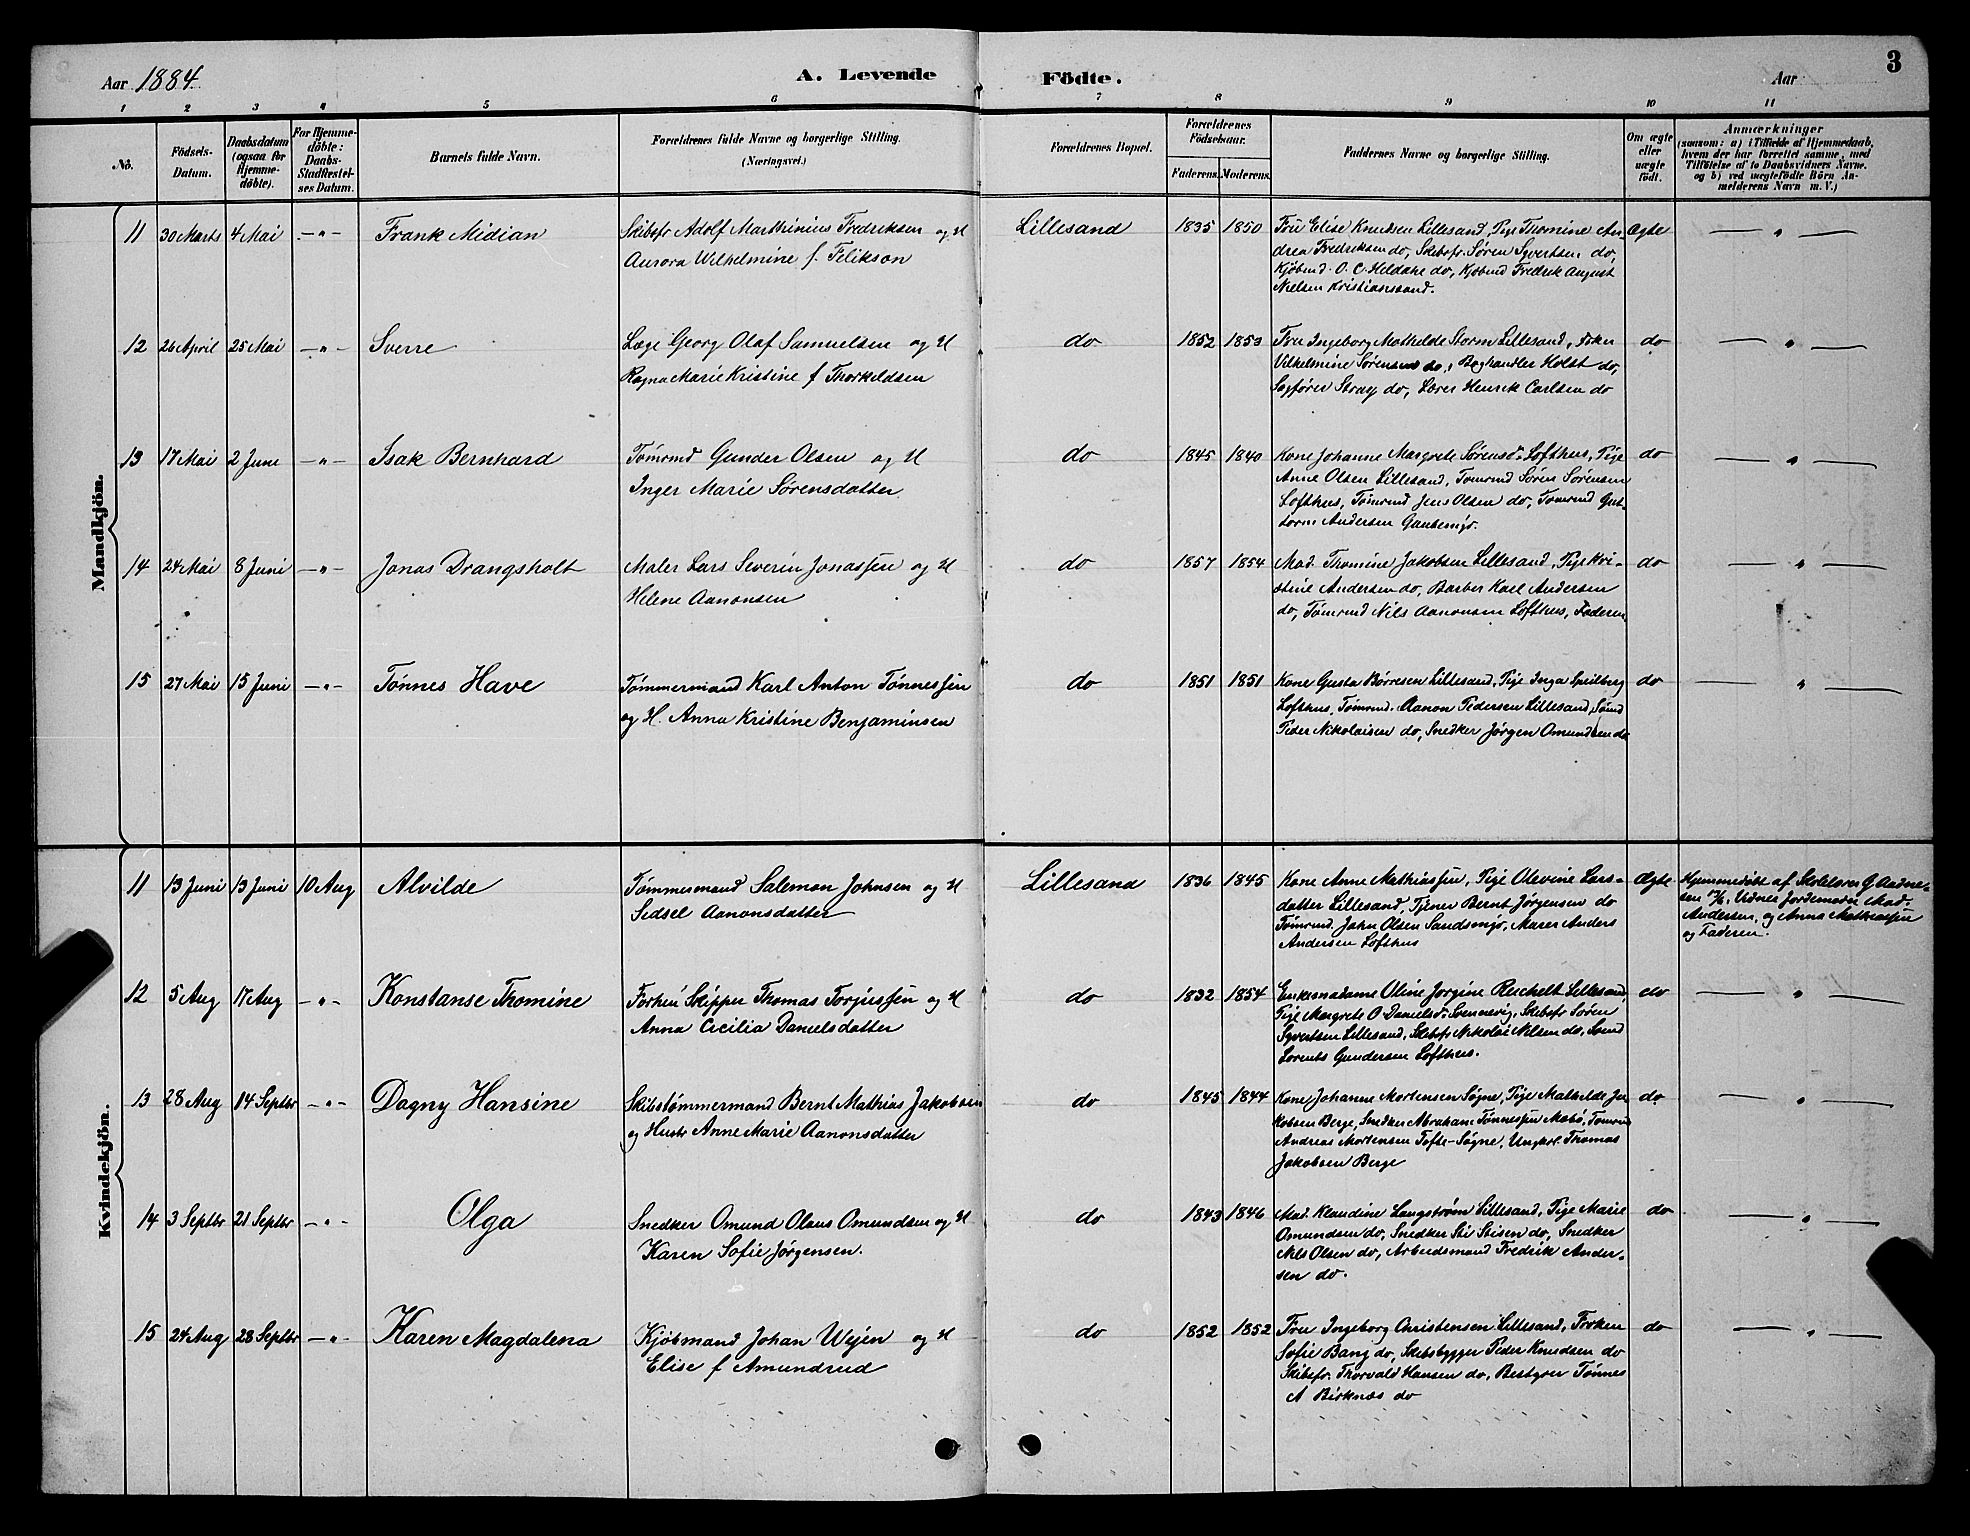 Aar 1884. A. Levende Födte. Aar 3
1 2 3 4 5 6 7 8 9 10 11
No. Födsels-Datum. Daabsdatum (ogsaa for Hjemme-döbte). For Hjemme-döbte: Daabs-Stadfæstel-ses Datum. Barnets fulde Navn. Forældrenes fulde Navne og borgerlige Stilling. (Næringsvei.) Forældrenes Bopæl. Forældrenes Födselsaar. Faderens. Moderens. Faddernes Navne og borgerlige Stilling. Om ægte eller uægte födt. Anmærkninger
(saasom: a) i Tilfælde af Hjemmedaab, hvem der har forrettet samme, med Tilföielse af to Daabsvidners Navne. og b) ved uægtefödte Börn An-melderens Navn m. V.)
Mandkjön.
11 30 Marts 4 Mai -"- Frank Midian Skibsfr Adolf Marthinius Fredriksen og H Lillesand 1835 1850 Fru Elise Knudsen Lillesand, Pige Thomine An- Ægte — " —
Aurora Wilhelmine f. Felikson drea Fredriksen do, Skibsfr. Søren Syvertsen do,
Kjøbmd. O. C. Heldahl do, Kjøbmd Fredrik August
Nielsen Kristianssand.
12 26 April 25 Mai -"- Sverre Læge Georg Olaf Samuelsen og H do 1852 1853 Fru Ingeborg Mathilde Storm Lillesand, Frkn do — " —
Ragna Marie Kristine f Thorkeldsen Vilhelmine Sørensen do, Boghandler Holst do,
Sagfører Stray do, Lærer Henrik Carlsen do
13 17 Mai 2 June -"- Isak Bernhard Tømrmd Gunder Olsen og H do 1845 1840 Kone Johanne Margrete Sørensd. Lofthus, Pige do — " —
Inger Marie Sørensdatter Anne Olsen Lillesand, Tømrmd Søren Sørensen
Lofthus, Tømrmd Jens Olsen do, Tømrmd Gut-
torm Andersen
14 24 Mai 8 Juni -"- Jonas Drangsholt Maler Lars Severin Jonassen og H do 1857 1854 Mad. Thomine Jakobsen Lillesand, Pige Kri- do — " —
Helene Aanonsen stine Andersen do, Barber Karl Andersen
do, Tømrmd Nils Aanonsen Lofthus, Faderen
15 27 Mai 15 Juni -"- Tønnes Have Tømmermand Karl Anton Tønnessen do 1851 1851 Kone Gusta Børresen Lillesand, Pige Inga Spilberg do — " —
og H. Anna Kristine Benjaminsen Lofthus, Tømrmd. Aanon Pedersen Lillesand, Sømd
Peder Nikolaisen do, Snedker Jørgen Omundsen do
Kvindekjön.
11 13 Juni 13 Juni 10 Aug Alvilde Tømmermand Salemon Johnsen og H Lillesand 1836 1845 Kone Anne Mathiassen, Pige Olevine Lars- Ægte Hjemmedøbt af Skolelærer G Aadne-
Sidsel Aanonsdatter datter Lillesand, Tjener Bernt Jørgensen do sen Vidner Jordemoder Mad.
Tømrmd. John Olsen Sandsmyr, Murer Anders Andersen, og Anna Mathiassen
Andersen Lofthus og Faderen.
12 5 Aug 17 Aug -"- Konstanse Thomine Forhen Skipper Thomas Torjussen og H do 1832 1854 Enkemadame Oline Jorgine Reichelt Lillesand, do — " —
Anna Cecilia Danielsdatter Pige Margrete O. Danielsd. Svennevig, Skibsfr Søren
Syvertsen Lillesand, Skibsfr Nikolai Nilsen do, Sømd
Lorents Gundersen Lofthus.
13 28 Aug 14 Septbr -"- Dagny Hansine Skibstømmermand Bernt Mathias Jakobsen do 1845 1844 Kone Johanne Mortensen Søgne, Pige Mathilde Ja- do — " —
og Hustr Anne Marie Aanonsdatter kobsen Berge, Snedker Abraham Tønnessen Møbø, Tømrmd
Andreas Mortensen Tofte-Søgne, Ungkrl. Thomas
Jakobsen Berge
14 3 Septbr 21 Septbr -"- Olga Snedker Omund Olaus Omundsen og H do 1843 1846 Mad. Klaudine Langstrøm Lillesand, Pige Marie do — " —
Karen Sofie Jørgensen. Omundsen do, Snedker Sti Stisen do, Snedker
Nils Olsen do, Arbeidsmand Fredrik Ander-
sen do.
15 24 Aug 28 Septbr -"- Karen Magdalena Kjøbmand Johan Wejen og H do 1852 1852 Fru Ingeborg Christensen Lillesand, Frøken do — " —
Elise f Amundrud Sofie Bang do, Skibsbygger Peder Knudsen do
Skibsfr. Thorvald Hansen do, Bestyrer Tønnes
A Birknæs do